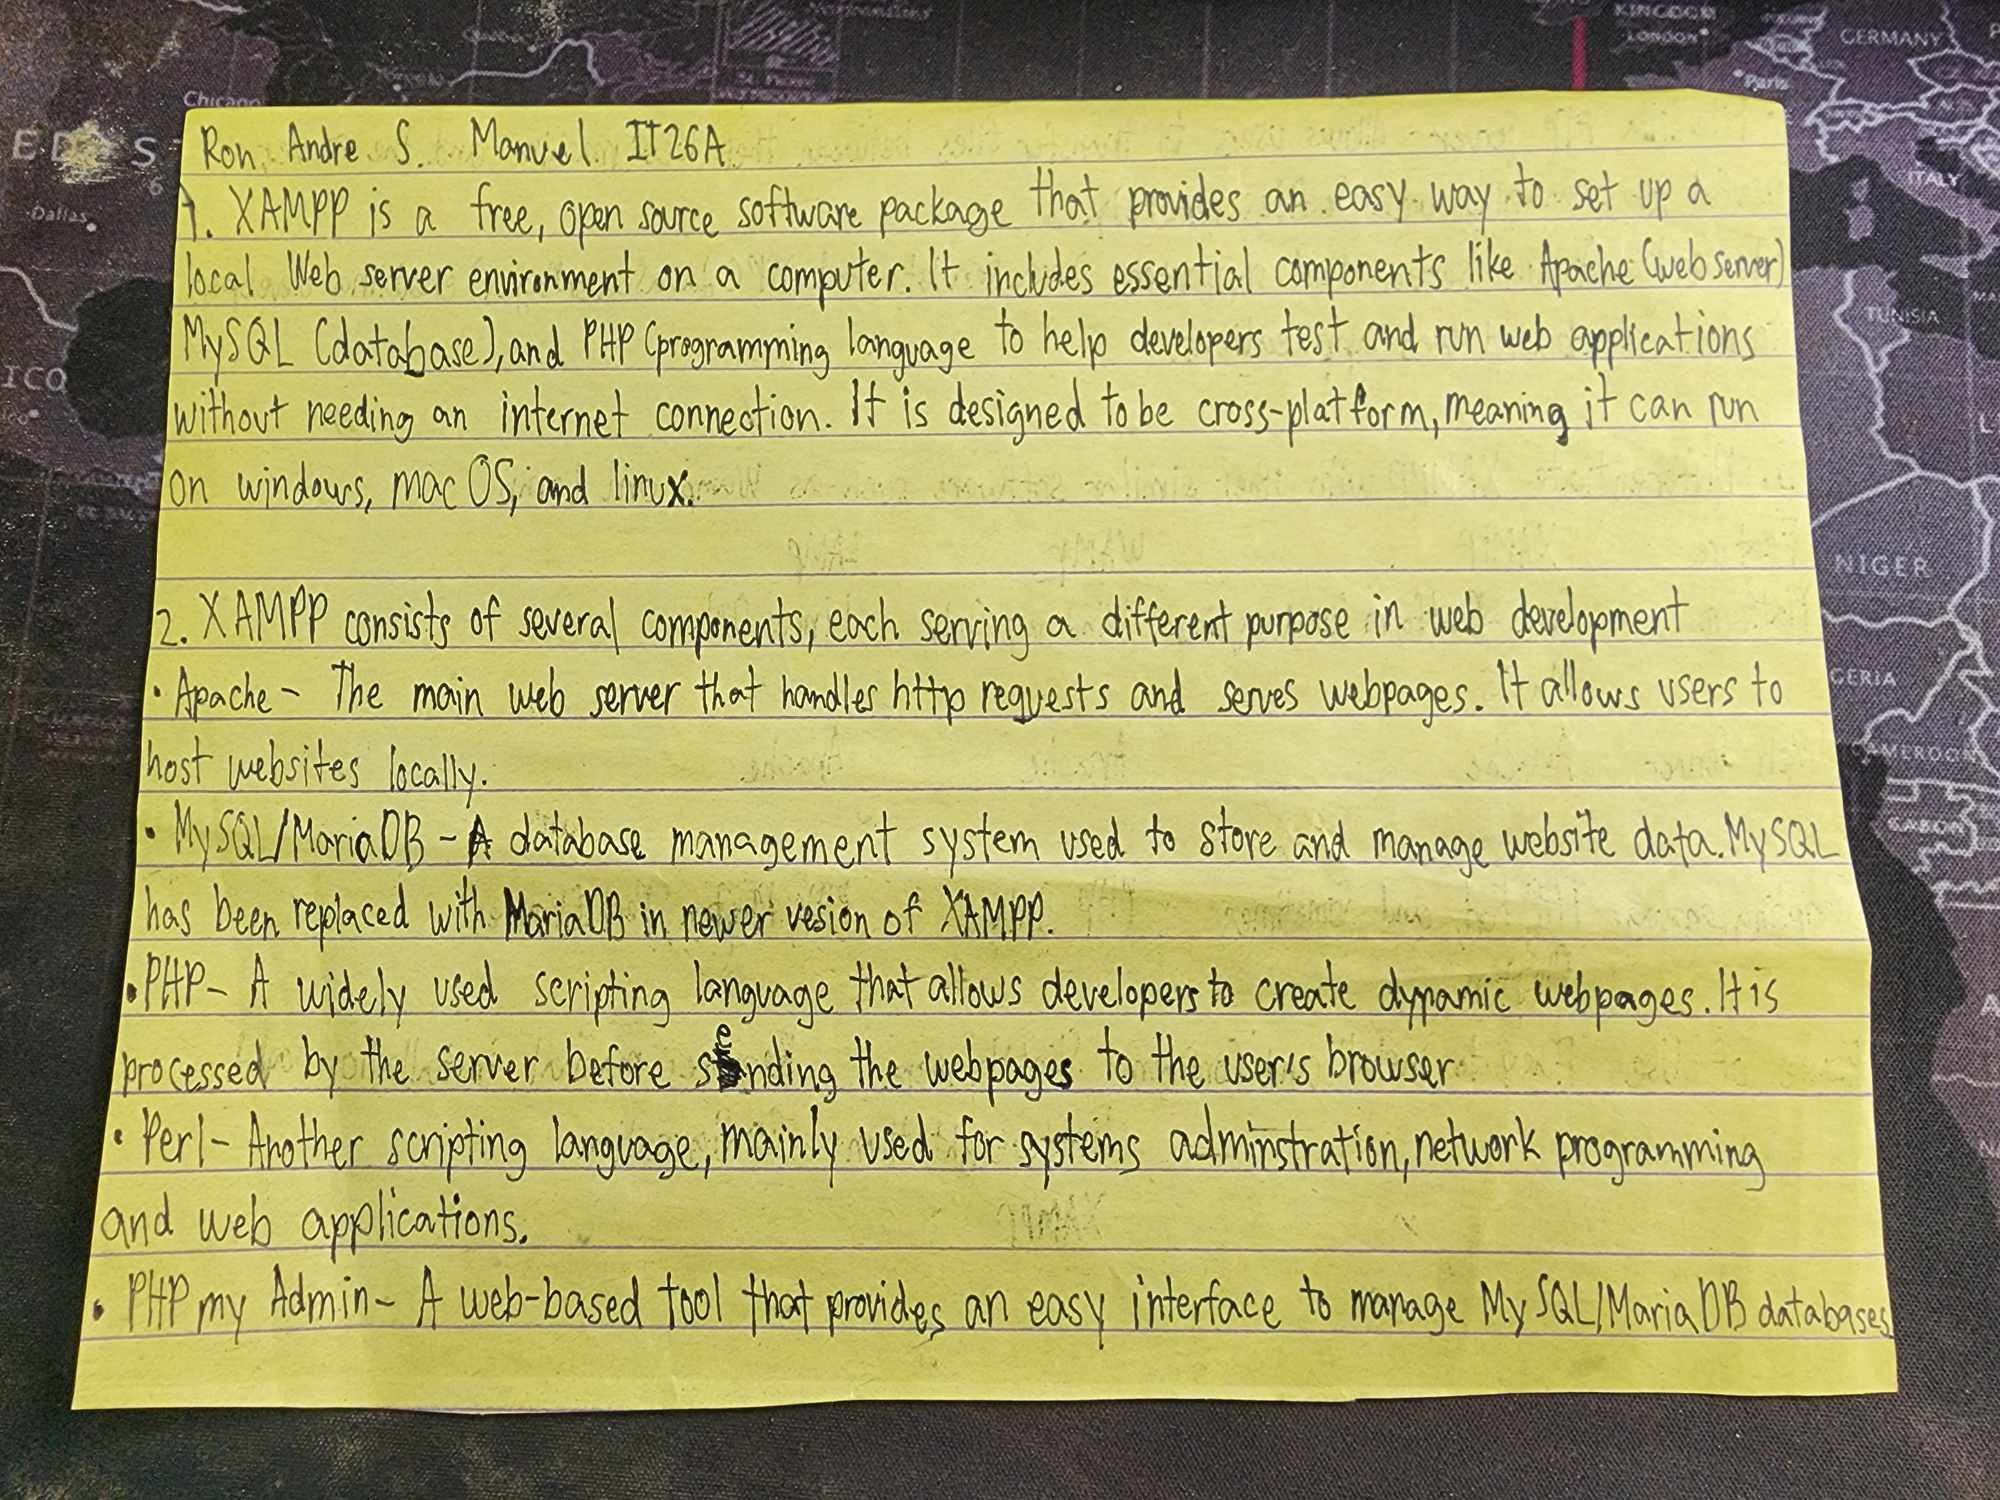 Ron Andre S. Manuel IT26A
1. XAMPP is a free, open source software package that provides an easy way to set up a
local Web server environment on a computer. It includes essential components like Apache (web server)
MySQL (database), and PHP (programming language to help developers test and run web applications
without needing an internet connection. It is designed to be cross-platform, meaning it can run
on windows, mac OS, and linux.
2. XAMPP consists of several components, each serving a different purpose in web development
• Apache - The main web server that handles http requests and serves webpages. It allows users to
host websites locally.
• MySQL/MariaDB - A database management system used to store and manage website data. MySQL
has been replaced with MariaDB in newer vesion of XAMPP.
• PHP - A widely used scripting language that allows developers to create dynamic webpages. It is
processed by the server before sending the webpages to the user's browser
• Perl - Another scripting language, mainly used for systems adminstration, network programming
and web applications.
• PHP my Admin - A web-based tool that provides an easy interface to manage MySQL/MariaDB databases
Chicago
Dallas
KINGDOM
LONDON
Paris
GERMANY
ITALY
TUNISIA
NIGER